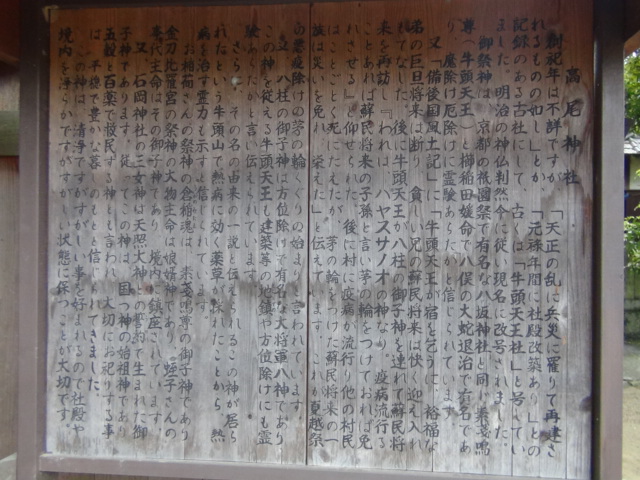 高尾神社
創祀年は不詳ですが、「天正の乱に兵災に罹りて再建さ
れるもの如し」とか、「元禄年間に社殿改築あり」との
記録のある古社にして、古くは「牛頭天王社」と号してい
ましたが、明治の神仏判然令に従い現名に改号されました。
御祭神は、京都の祇園祭で有名な八坂神社と同じ素戔嗚
尊(牛頭天王)と櫛稲田媛命で八俣の大蛇退治で有名であ
り、魔除け厄除けに霊験あらたかと信じられています。
又「備後国風土記」に「牛頭天王が宿を乞うに、裕福な
弟の巨旦将来は断り、貧しい兄の蘇民将来は快く迎え入れ
もてなした。後に牛頭天王が八柱の御子神を連れて蘇民将
来を再訪し『われは、ハヤスサノオの神なり。疫病流行る
ことあれば蘇民将来の子孫と言い茅の輪をつけておれば免
れさせる』と仰せられた。後に村に疫病が流行り他の村民
はことごとく死にたえたが、茅の輪をつけた蘇民将来の一
族は災いを免れ、栄えた」と伝えています。これが夏越祭
の悪疫除けの茅の輪くぐりの始まりと言われています。
又、八柱の御子神は方位除けで有名な大将軍八神であり
この神を従える牛頭天王も建築等の地鎮や方位除けにも霊
験あらたかと言い伝えられています。
さらに、その名の由来の一説と伝えられるこの神が居ら
れたという牛頭山で熱病に効く薬草が採れたことから、熱
病を治す霊力も示すと信じられています。
お稲荷さんの祭神の倉稲魂は、素戔嗚尊の御子神であり
金刀比羅宮の祭神の大物主命は娘婿神であり、蛭子さんの
事代主命はその御子神であり、境内に鎮座されています。
又、石岡神社の三女神は天照大神との誓約で生まれた御
子神であります。従ってこの神は、国つ神の始祖神であり
五穀と百薬で救民する神とも言われ、大切にお祀りする事
は、平穏で豊かな暮しのもとと信じられてきました。
この神は、清浄ですがすがしい事を好まれるので社殿や
境内を浄らかですがすがしい状態に保つことが大切です。